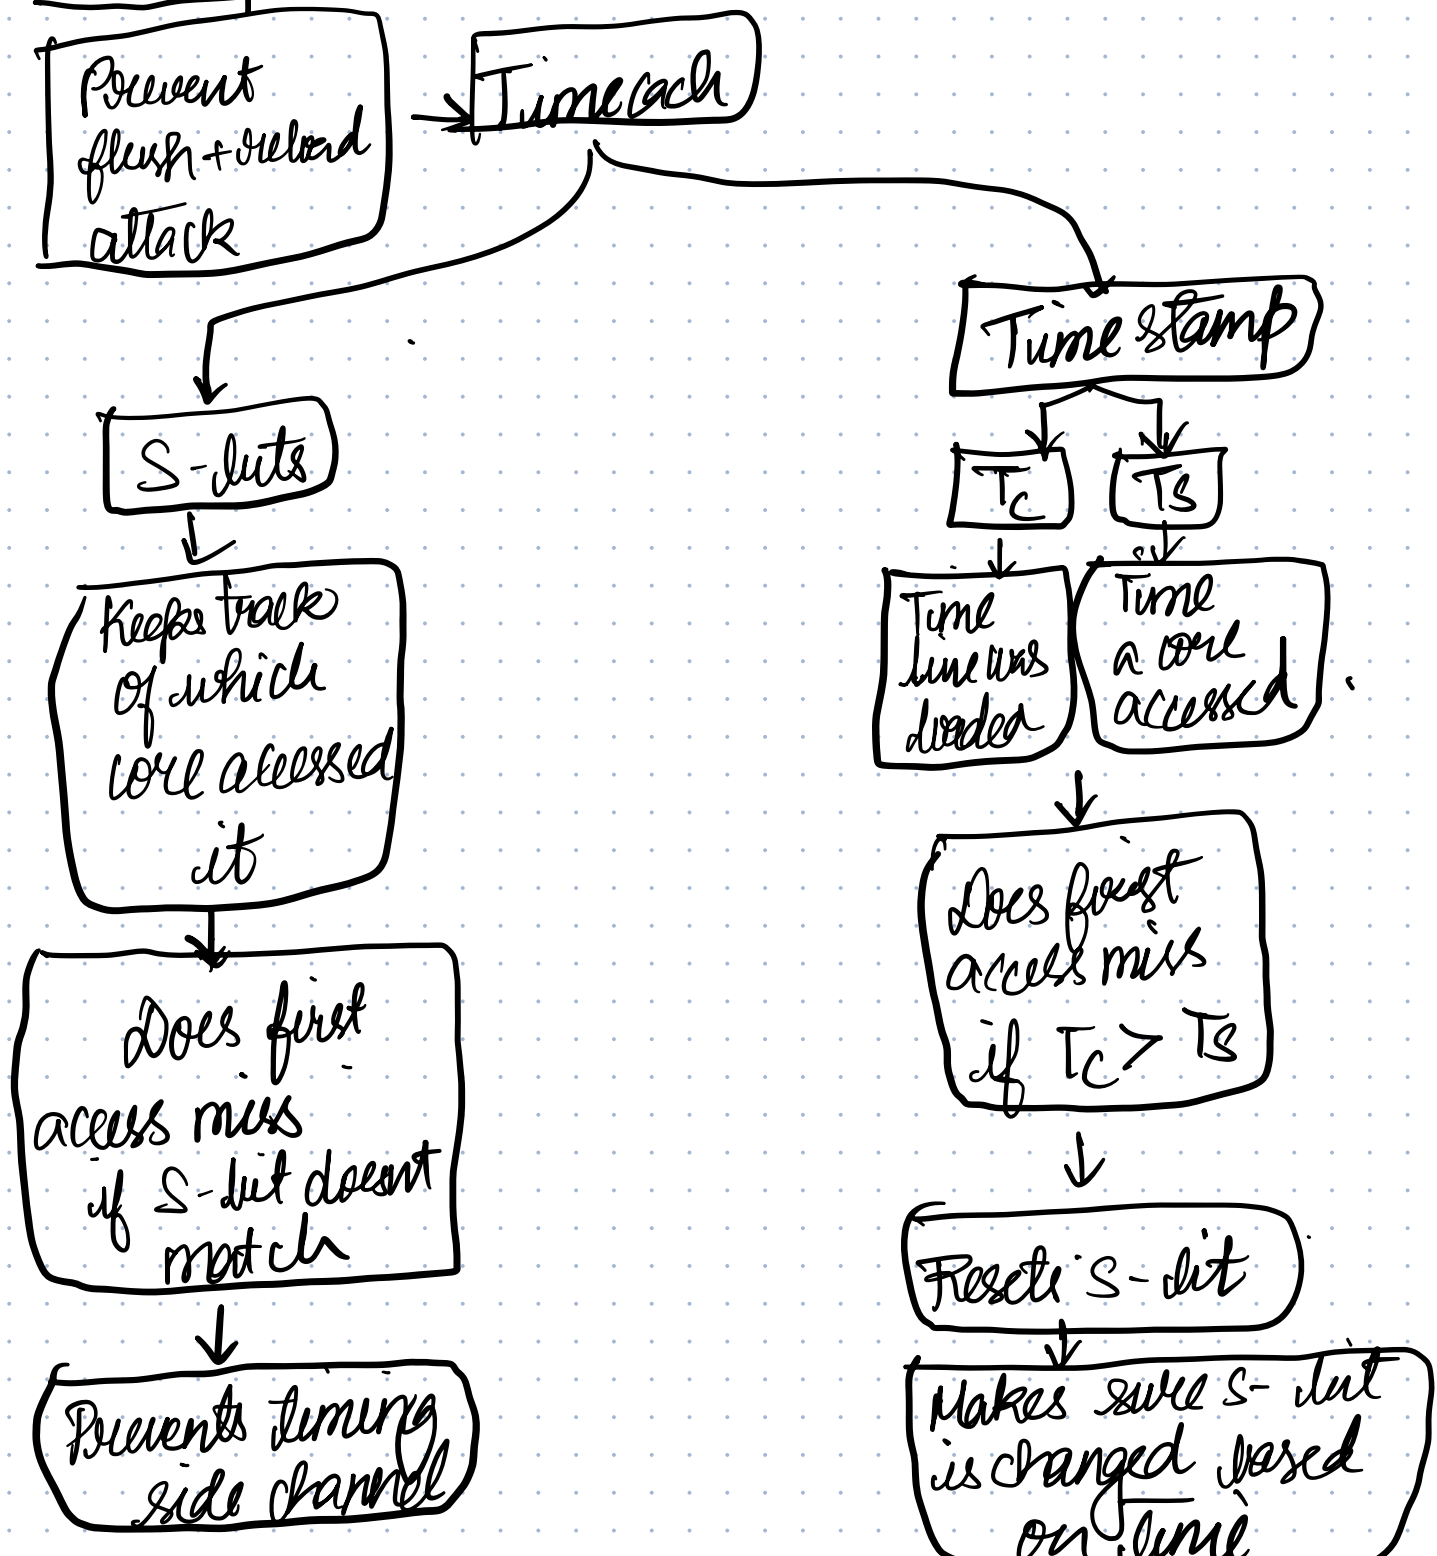 Prevent
flush+reload
attack
Timecach
S-bits
Keeps track
of which
core accessed
it
Does first
access miss
if S-bit doesnt
match
Prevents timing
side channel
Time stamp
Tc
Ts
Time
line was
loaded
Time
a core
accessed
Does first
access miss
if Tc > Ts
Resets S-bit
Makes sure S-bit
is changed based
on time